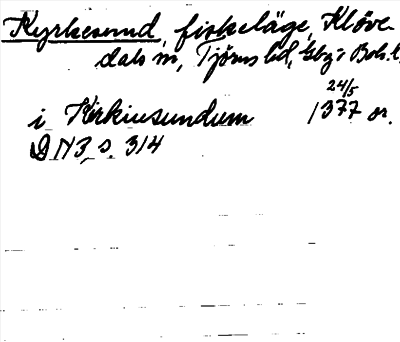 Kyrkesund, fiskeläge, Klöve-
dals sn, Tjörns hd, Gbg o Boh. l.
24/5
i Kirkiusundum 1377 or.
DN 3, s. 314